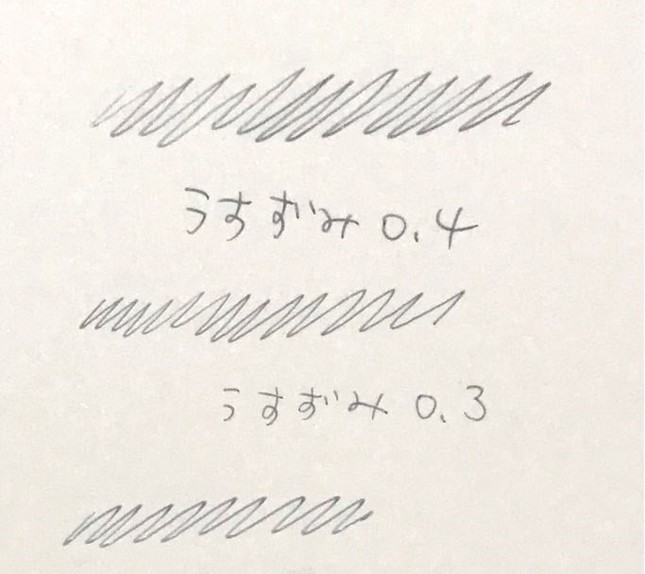 うすずみ 0.4
うすずみ 0.3